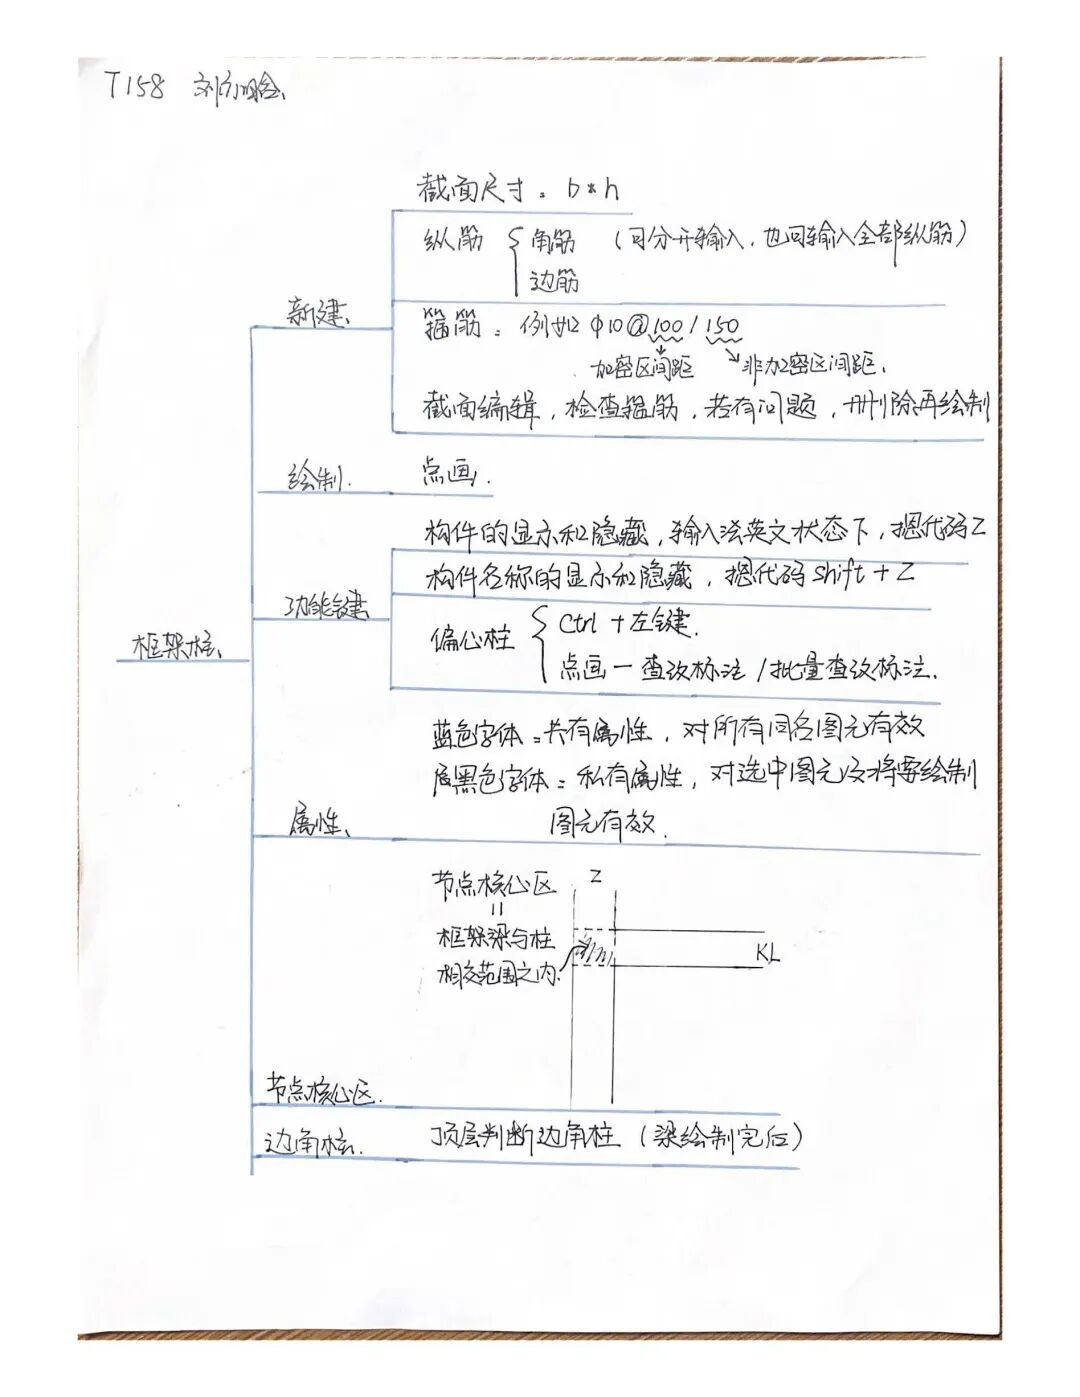 T158 刘
截面尺寸：b*h
纵筋 角筋 （可分开输入，也可输入全部纵筋）
边筋
新建
箍筋：例如 Φ10@100/150
加密区间距 非加密区间距.
截面编辑，检查箍筋，若有问题，删除再绘制
绘制. 点画.
构件的显示和隐藏，输入法英文状态下，摁代码Z
构件名称的显示和隐藏，摁代码Shift+Z
功能键
偏心柱 Ctrl+左键.
点画一查改标注/批量查改标注.
框架柱
蓝色字体：共有属性，对所有同名图元有效
黑色字体：私有属性，对选中图元及将要绘制
图元有效.
属性
节点核心区 Z
=
框架梁与柱
相交范围之内. KL
节点核心区.
边角柱. 顶层判断边角柱（梁绘制完后）